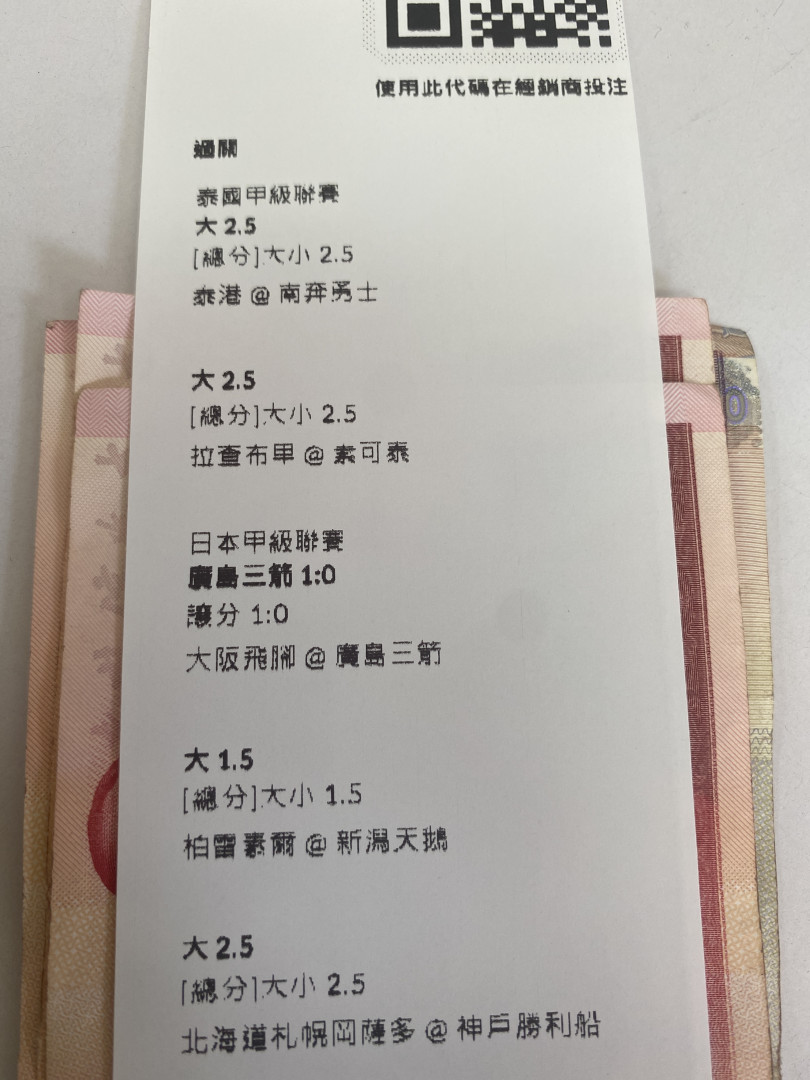 使用此代碼在經銷商投注
過關
泰國甲級聯賽
大 2.5
[總分]大小 2.5
泰港 @ 南奔勇士
大 2.5
[總分]大小 2.5
拉查布里 @ 素可泰
日本甲級聯賽
廣島三箭 1:0
讓分 1:0
大阪飛腳 @ 廣島三箭
大 1.5
[總分]大小 1.5
柏雷素爾 @ 新潟天鵝
大 2.5
[總分]大小 2.5
北海道札幌岡薩多 @ 神戶勝利船